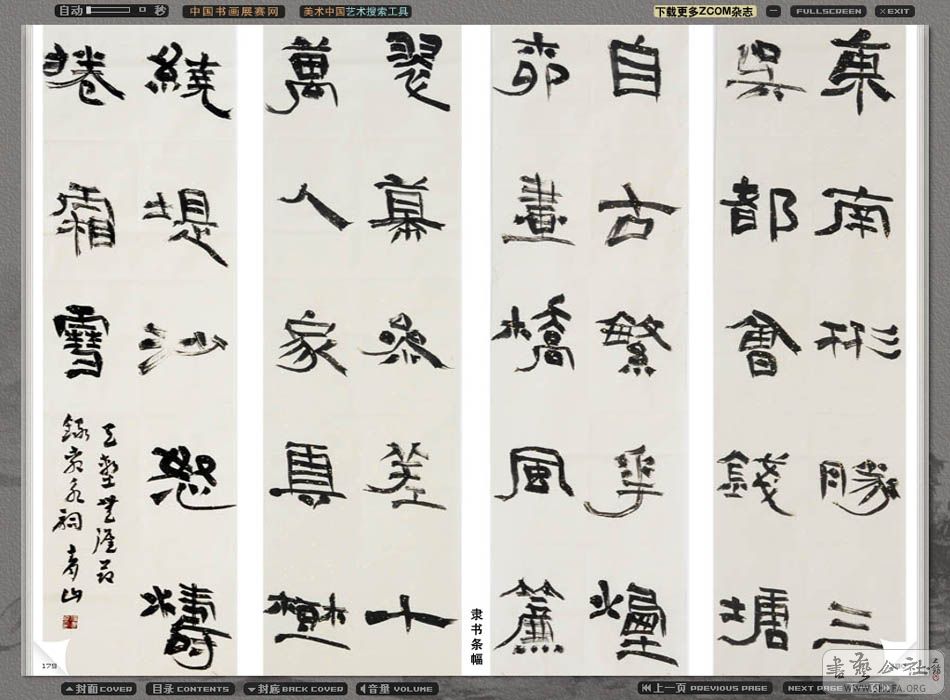 自动 秒 中国书画展赛网 美术中国艺术搜索工具 下载更多ZCOM杂志 FULLSCREEN EXIT
東南形勝三
吳都會錢塘
自古繁華煙
柳畫橋風簾
翠幕參差十
萬人家雲樹
繞堤沙怒濤
捲霜雪
天塹無涯節
錄柳永詞 青山
隶书条幅
179
封面 COVER 目录 CONTENTS 封底 BACK COVER 音量 VOLUME 上一页 PREVIOUS PAGE NEXT PAGE